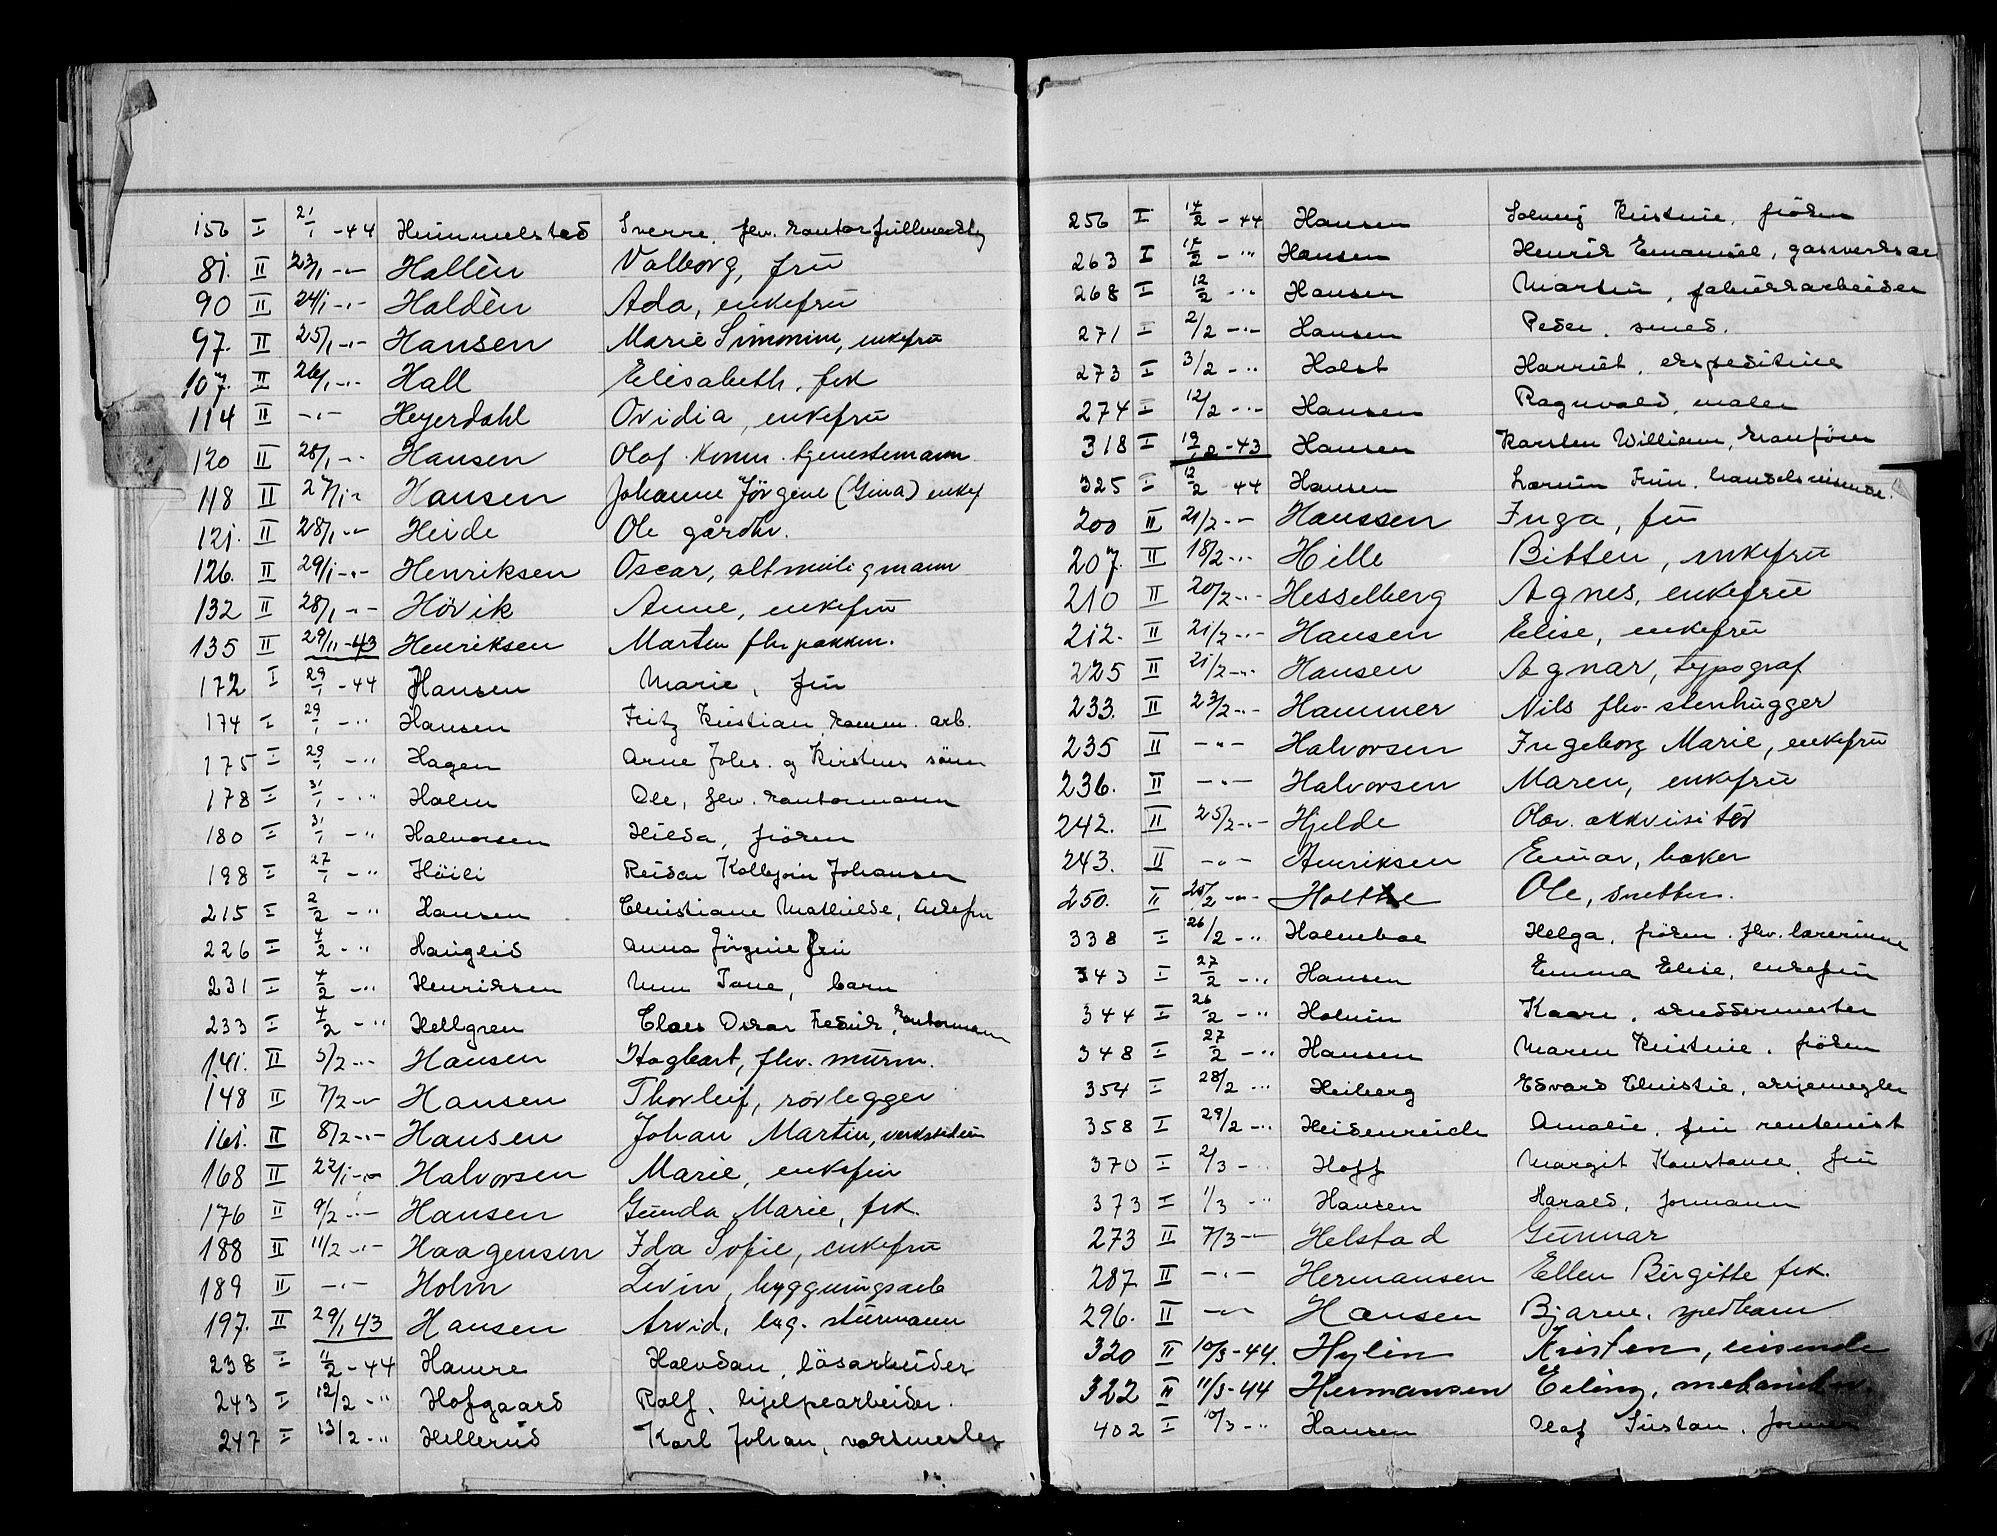 156 I 21/1 -44 Himmelstad Sverre, flv. kontorfullmektig
81. II 23/1 -"- Hallèn Valborg, fru
90 II 24/1 -"- Haldèn Ada, enkefru
97. II 25/1 -"- Hansen Marie Simonine, enkefru
107. II 26/1 -"- Hall Elisabeth, frk
114 II -"- Heyerdahl Ovidia, enkefru
120 II 28/1 -"- Hansen Olaf Komm. tjenestemann
118 II 27/1 -"- Hansen Johanne Jörgine (Gina) enkef
121. II 28/1 -"- Heide Ole gårdbr.
126. II 29/1 -"- Henriksen Oscar, altmuligmann
132 II 28/1 -"- Hövik Anne, enkefru
135 II 29/11 -43 Henriksen Marten flv. pakkm.
172 I 29/1 -44 Hansen Marie, fru
174 I 29/1 -" Hansen Fritz Kristian, komm. arb.
175 I 29/1 -" Hagen Arne Johs. og Kirstens sönn
178 I 31/1 -" Holm Ole, flv. kontormann
180 I 31/1 -" Halvorsen Hilda, fröken
198 I 27/1 -" Höili Reidar Kolbjörn Johansen
215 I 2/2 -" Hansen Christiane Mathilde, Enkefru
226 I 4/2 -" Hauglid Anna Jörgine fru
231 I 4/2 -" Henriksen Unn Tone, barn
233 I 4/2 -" Hellgren Claes Oskar Fredrik, kontormann
141. II 5/2 -"- Hansen Hagbart, flv. murm.
148 II 7/2 -"- Hansen Thorleif, rörlegger
161. II 8/2 -"- Hansen Johan Martin, verkstedarb
168 II 22/1 -"- Halvorsen Marie, enkefru
176 II 9/2 -"- Hansen Gunda Marie, frk.
188 II 11/2 -"- Haagensen Ida Sofie, enkefru
189 II -"- Holm Levin, byggningsarb
197. II 29/1 43 Hansen Arvid, lug. sturmann
238 I 11/2 -44 Hamre Halvdan, läsarbeider
243 I 12/2 -" Hofgaard Rolf, hjelpearbeider.
247 I 13/2 -" Hellerud Karl Johan, vaktmester
256 I 14/2 -44 Hansen Solveig Kristine, fröken
263 I 14/2 -" Hansen Henrik Emanuel, gasverksar
268 I 12/2 -" Hansen Martin, fabrikkarbeider
271 I 2/2 -"- Hansen Peder, smed.
273 I 3/2 -" Holst Harriet, ekspeditrice
274 I 12/2 -"- Hansen Ragnvald, maler
318 I -43 Hansen Karsten William, kranförer
325 I 12/2 -44 Hansen handelsreisende.
200 II 21/2 -"- Hanssen Inga, fru
207. II 18/2 -"- Hille Bitten, enkefru
210 II 20/2 -"- Hesselberg Agnes, enkefru
212. II 21/2 -"- Hansen Elise, enkefru
225 II 21/2 -"- Hansen Agnar, typograf
233. II 23/2 -"- Hammer Nils flv. stenhugger
235 II -"- Halvorsen Ingeborg Marie, enkefru
236. II -"- Halvorsen Maren, enkefru
242. II 25/2 -"- Hjelde Olav. akkvisitör
243. II -"- Henriksen Einar, baker
250. II 25/2 -"- Holthe Ole, snekker.
338 I 26/2 -" Holmboe Helga, fröken. flv. lærerinne
343 I 27/2 -" Hansen Emma Elise, enkefru
344 I 26/2 -" Holmin Kaare, skreddermester
348 I 27/2 -" Hansen Maren Kristine, fröken
354 I 28/2 -" Heiberg Edvard Christie, skipsmegler
358 I 29/2 -" Heidenreich Amalie, fru rentenist
370 I 2/3 -" Hoff Margit Konstance, fru
373 I 1/3 -" Hansen Harald, formann
273 II 7/3 -"- Helstad Gunnar
287 II -"- Hermansen Ellen Birgitte frk.
296. II -"- Hansen Bjarne, spedbarn
320 II 10/3 -44. Hylin Kristen, reisende
322 II 11/3 -44 Hermansen Erling, mekaniker.
402 I 10/3 -" Hansen Olaf Gustav, formann